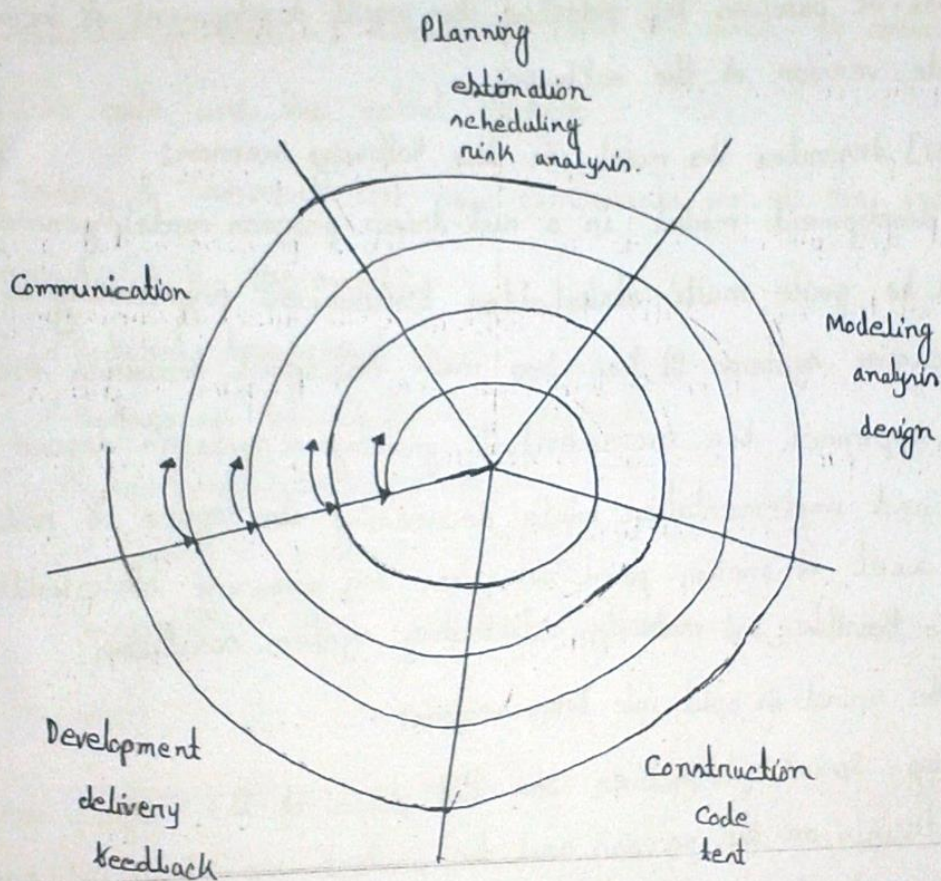 Planning
estimation
scheduling
risk analysis.
Communication
Modeling
analysis
design
Development
delivery
feedback
Construction
code
test